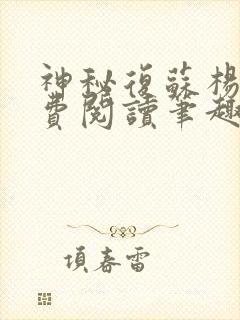 神秘復蘇楊
費閱讀筆趣
項春雷